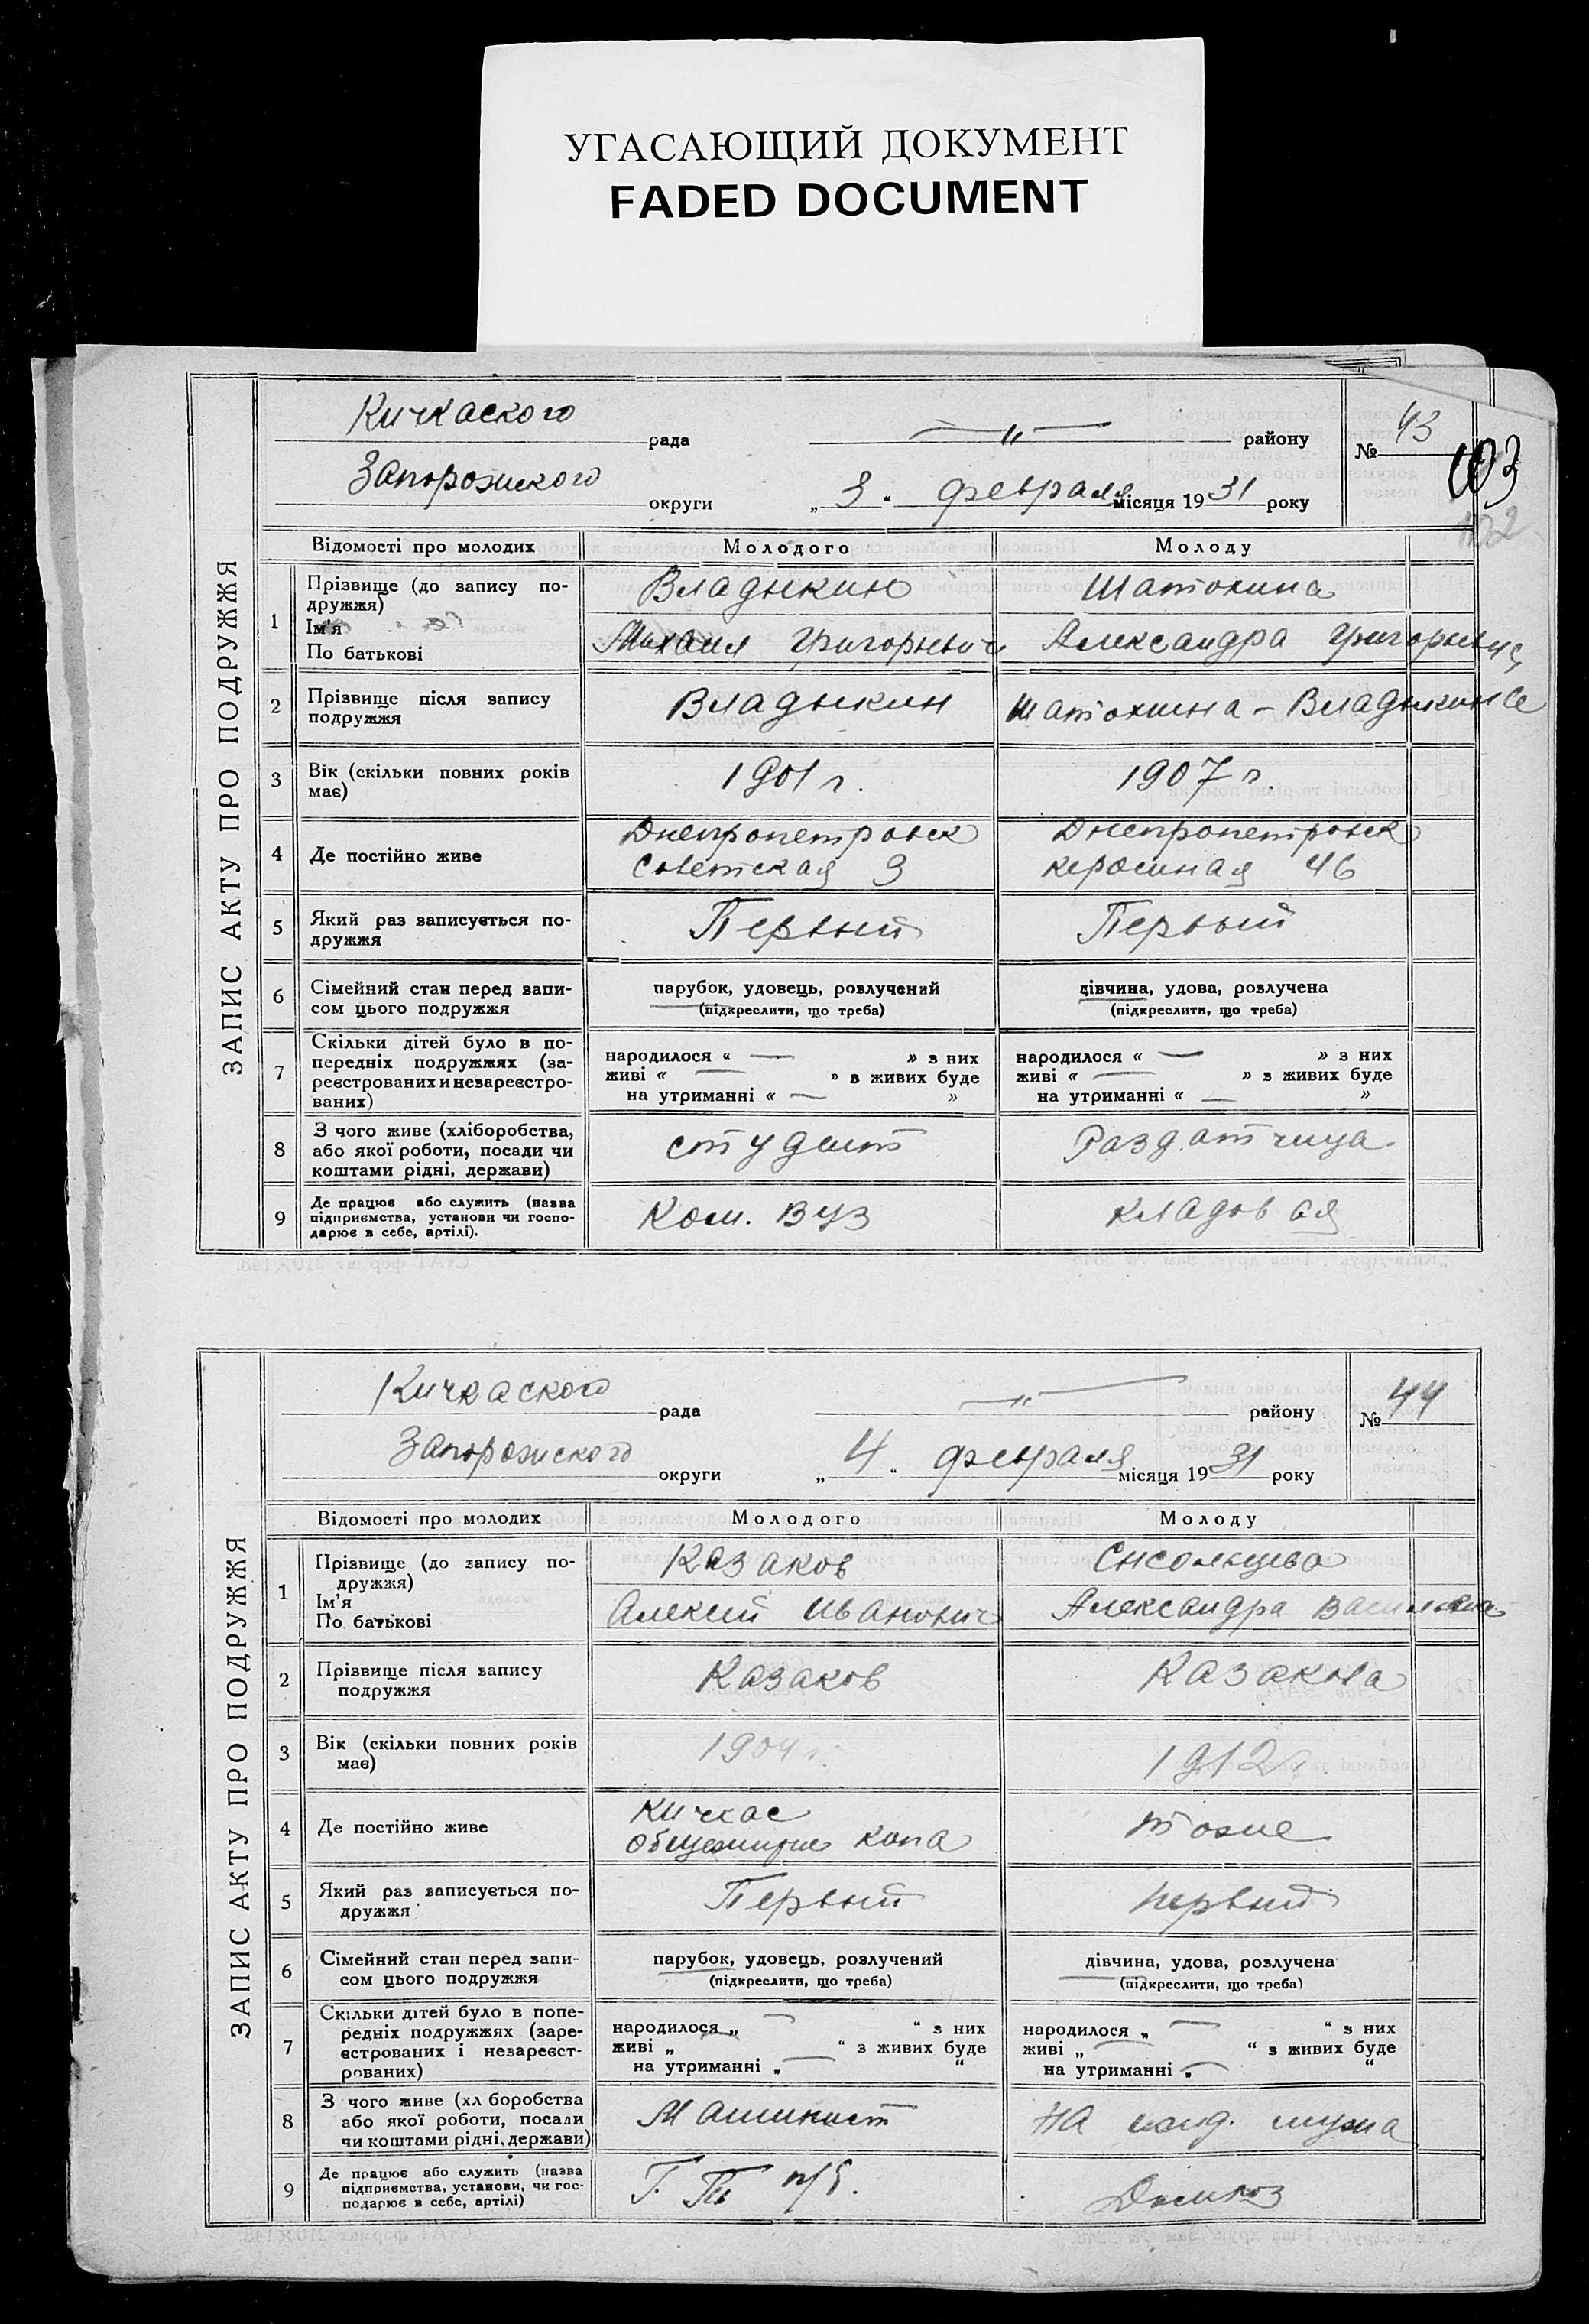 УГАСАЮЩИЙ ДОКУМЕНТ
FADED DOCUMENT
ЗАПИС АКТУ ПРО ПОДРУЖЖЯ
Кичкаского рада —〃— району
№ 43
103
102
Запорожского округи „3“ февраля місяця 1931 року
Відомості про молодих Молодого Молоду
1 Прізвище (до запису по-
дружжя)
Ім'я
По батькові
Владыкин
Михаил Григорьевич
Шатохина
Александра Григорьевна
2 Прізвище після запису
подружжя
Владыкин
Шатохина-Владыкина
3 Вік (скільки повних років
має)
1901 г.
1907 г.
4 Де постійно живе
Днепропетровск
Советская 9
Днепропетровск
керосиная 46
5 Який раз записується по-
дружжя
Первый
Первый
6 Сімейний стан перед запи-
сом цього подружжя
парубок, удовець, розлучений
(підкреслити, що треба)
дівчина, удова, розлучена
(підкреслити, що треба)
7 Скільки дітей було в по-
передніх подружжях (за-
реєстрованих и незареєстро-
ваних)
народилося « — » з них
живі « — » з живих буде
на утриманні « — »
народилося « — » з них
живі « — » з живих буде
на утриманні « — »
8 З чого живе (хліборобства,
або якої роботи, посади чи
коштами рідні, держави)
студент
Раздатчица
9 Де працює або служить (назва
підприємства, установи чи госпо-
дарює в себе, артілі).
Ком. Вуз
кладовая
ЗАПИС АКТУ ПРО ПОДРУЖЖЯ
Кичкаского рада —〃— району
№ 44
Запорожского округи „4“ февраля місяця 1931 року
Відомості про молодих Молодого Молоду
1 Прізвище (до запису по-
дружжя)
Ім'я
По батькові
Казаков
Алексей Иванович
Александра Васильевна
2 Прізвище після запису
подружжя
Казаков
Казакова
3 Вік (скільки повних років
має)
1904 г.
1912 г.
4 Де постійно живе
Кичкас
общежитие
тоже
5 Який раз записується по-
дружжя
Первый
первый
6 Сімейний стан перед запи-
сом цього подружжя
парубок, удовець, розлучений
(підкреслити, що треба)
дівчина, удова, розлучена
(підкреслити, що треба)
7 Скільки дітей було в попе-
редніх подружжях (заре-
єстрованих і незареєст-
рованих)
народилося „ — “ з них
живі „ — “ з живих буде
на утриманні „ — “
народилося „ — “ з них
живі „ — “ з живих буде
на утриманні „ — “
8 З чого живе (хл боробства
або якої роботи, посади
чи коштами рідні, держави)
Машинист
на ижд. мужа
9 Де працює або служить (назва
підприємства, установи, чи гос-
подарює в себе, артілі)
Домхоз